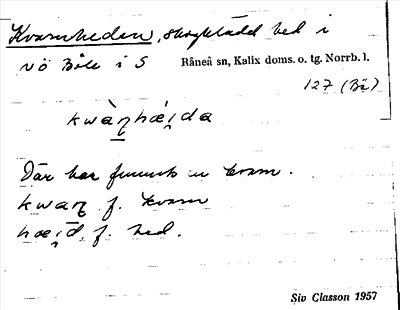 Kvarnheden, skogklädd hed i
nö Böle i S Råneå sn, Kalix doms. o. tg. Norrb. l.
127 (Bi)
kwàɳhæ̀i̯da
Där har funnits en kvarn.
kwaɳ f. kvarn
hæi̯d f. hed.
Siv Classon 1957